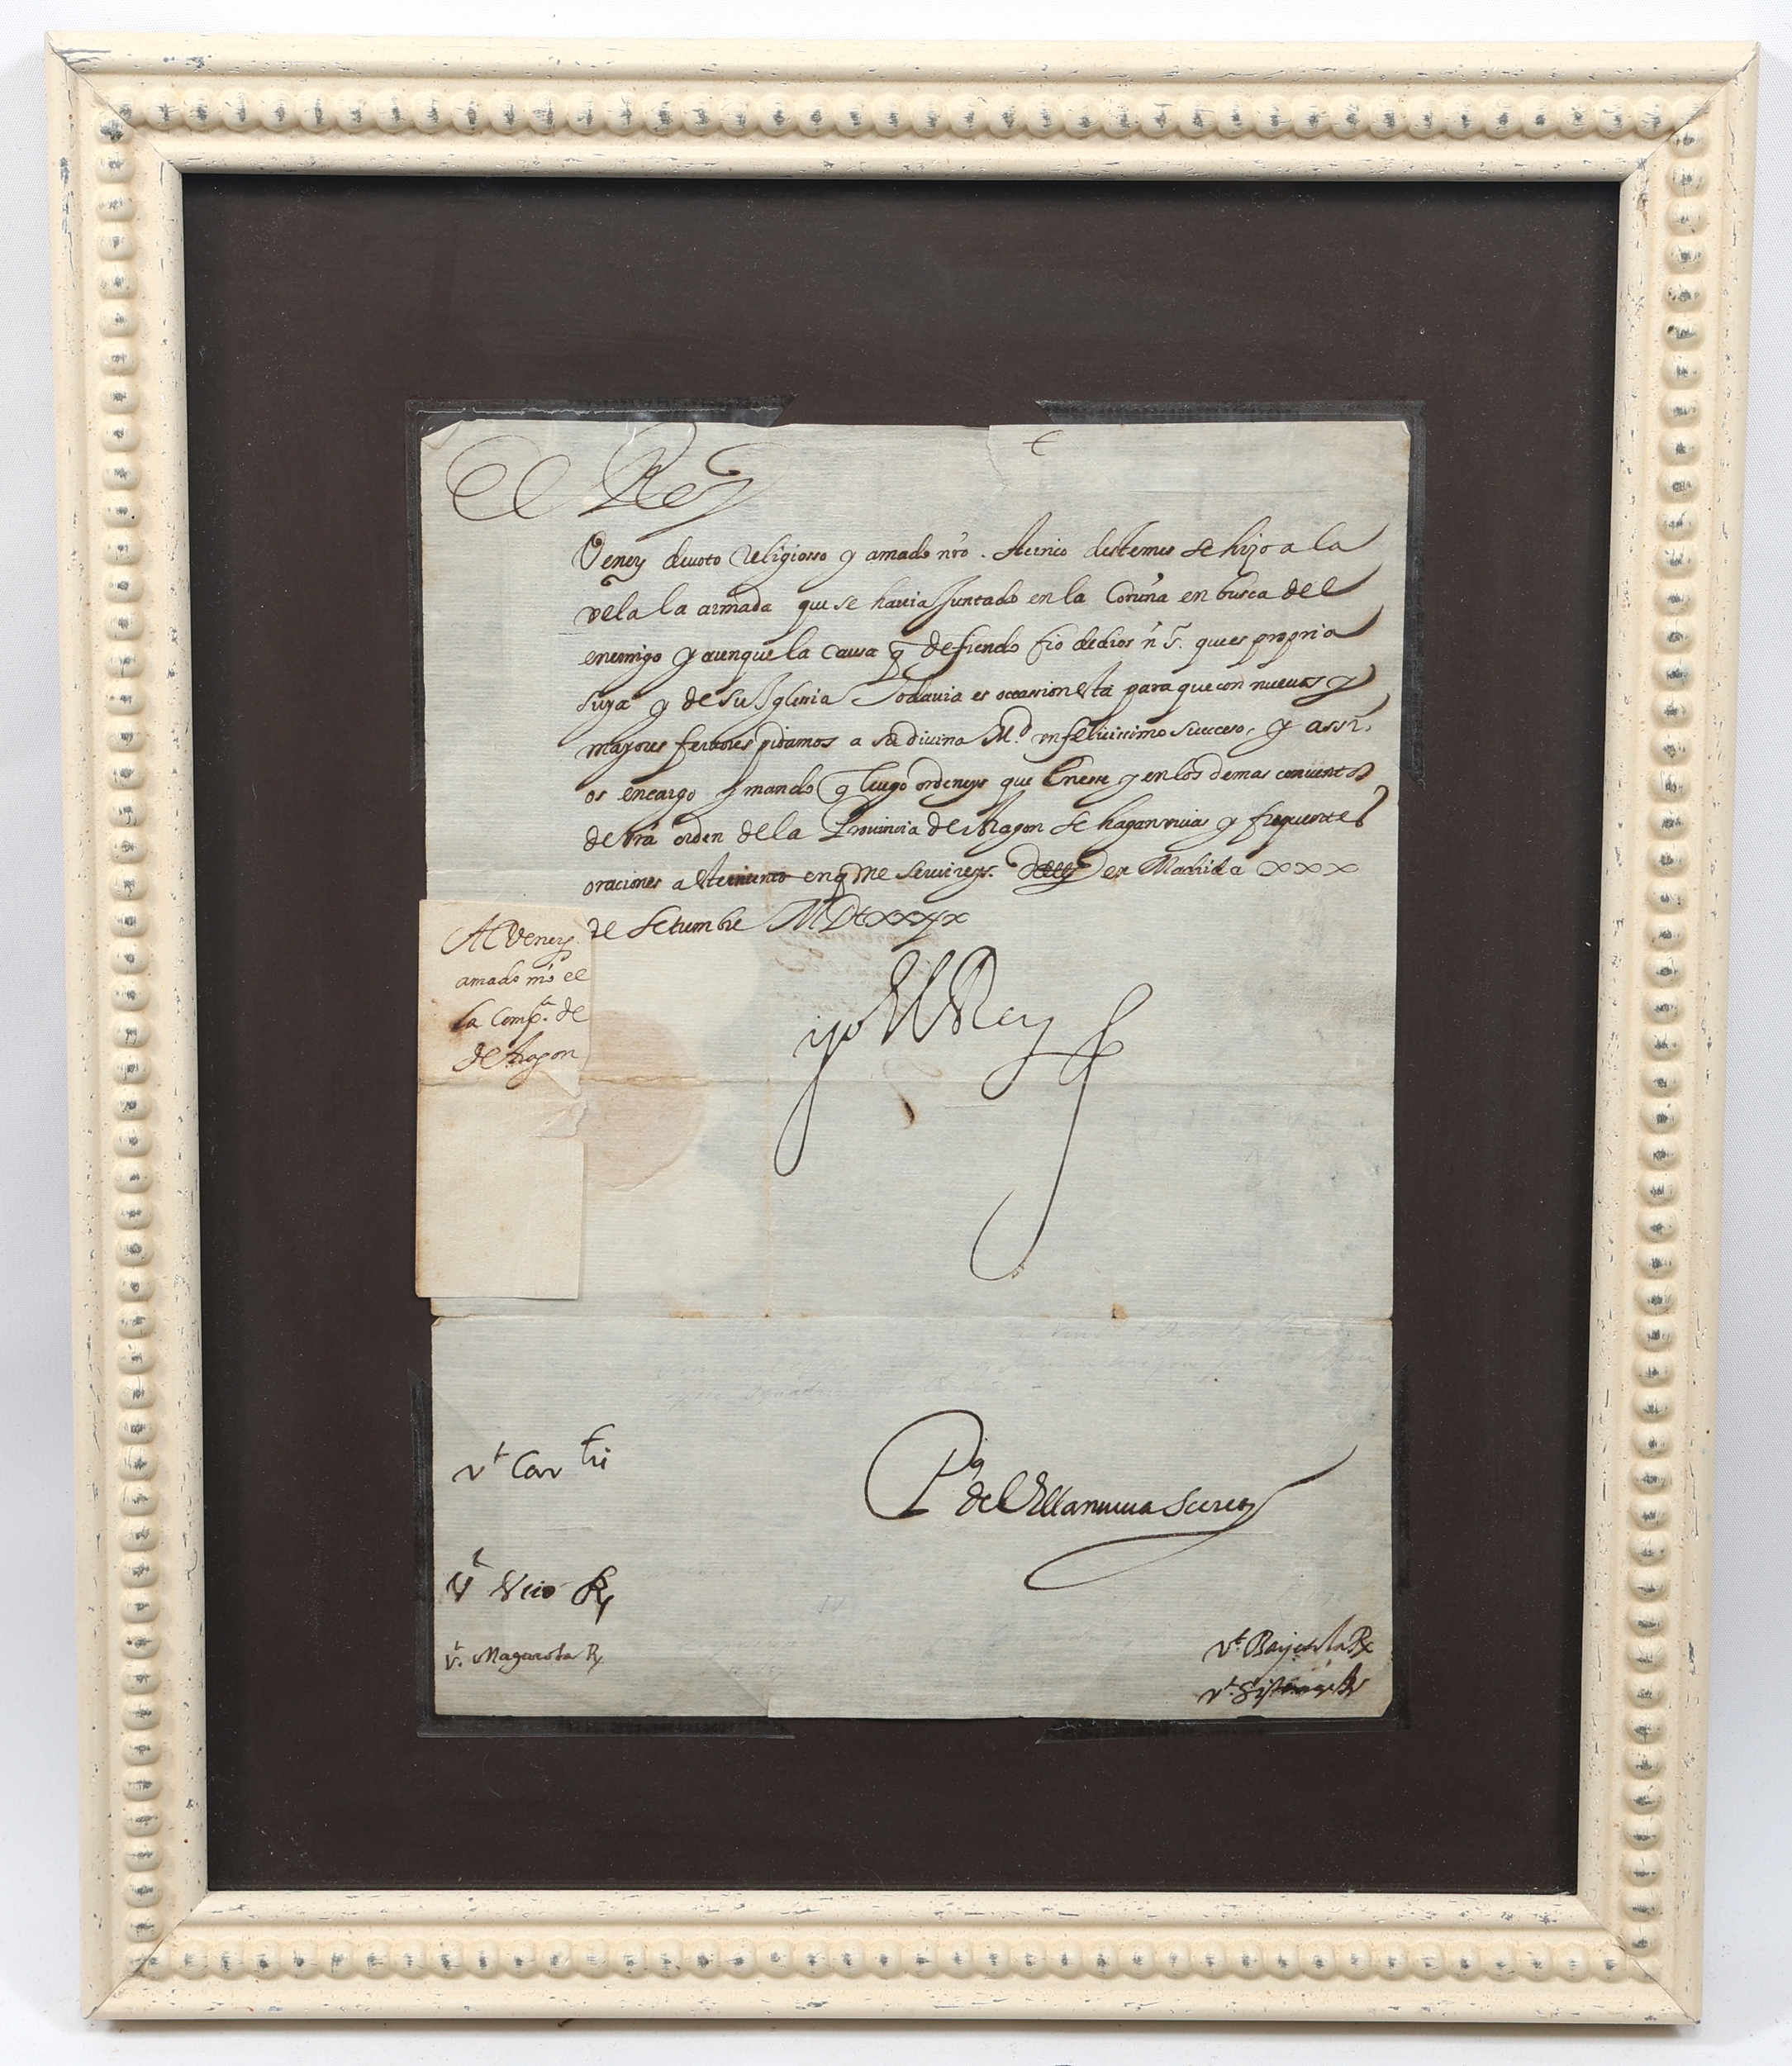 El Rey
Vener devoto religiosso y amado nro. A cinco deste mes se hizo a la
vela la armada que se havia Juntado en la Coruña en busca del
enemigo y aunque la causa q defiendo fio de dios n s.r que es propria
suya y de su Iglesia Todavia es occasion esta para que con nuevos y
mayores fervores pidamos a su divina M.d un felicissimo succeso, y assi
os encargo y mando q luego ordeneys que en esse y en los demas conventos
de vra orden de la Provincia de Aragon se hagan vivas y frequentes
oraciones a este en q me servireys. en Madrid a XXX
de Setiembre MDCXXXIX
Al Vener
amado nro el
la Comp.a de
de Aragon
yo El Rey
v.t Car
P.o de Villanueva Secret
V.t Vico R.
v.t Magarola R.
v.t Bayetola R.
v.t